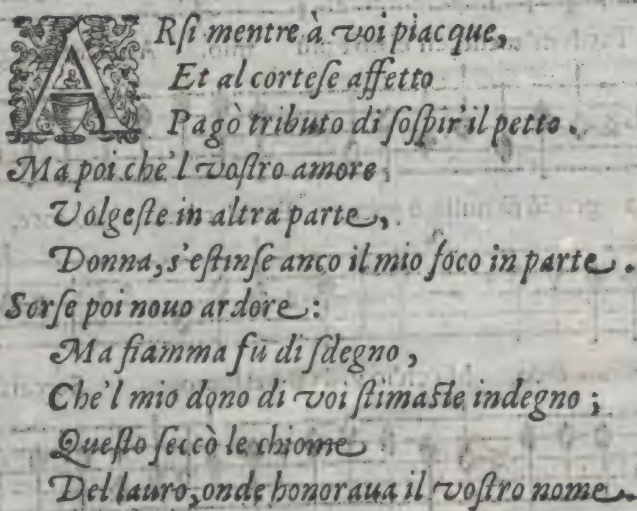 ARſi mentre à voi piacque,
Et al corteſe affetto
Pagò tributo di ſoſpir' il petto.
Ma poi che'l voſtro amore
Volgeſte in altra parte,
Donna, s'eſtinſe anco il mio foco in parte.
Sorſe poi nouo ardore:
Ma fiamma fù di ſdegno,
Che'l mio dono di voi ſtimaſte indegno;
Queſto ſeccò le chiome
Del lauro, onde honoraua il voſtro nome.